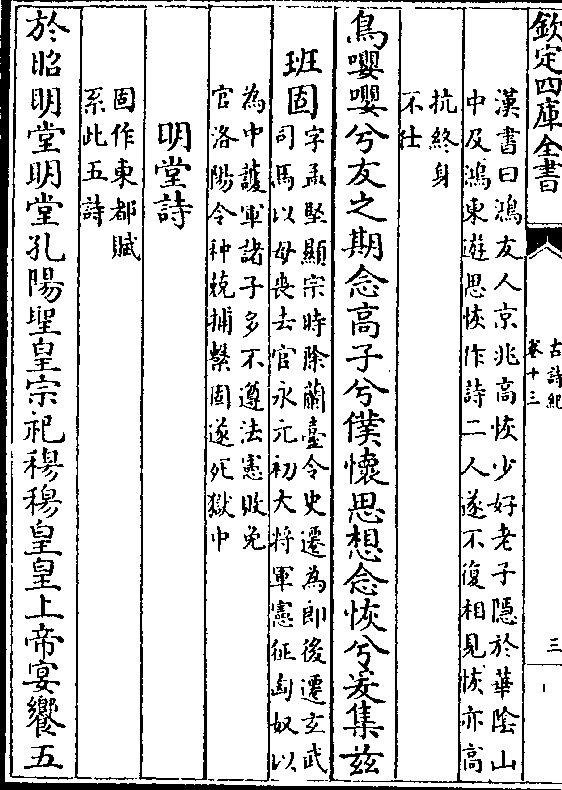 欽定四庫全書
古詩紀
卷十三
三
漢書曰鴻友人京兆高恢少好老子隱於華隂山
中及鴻東遊思恢作詩二人遂不復相見恢亦高
抗終身
不仕
鳥嚶嚶兮友之期念高子兮僕懷思想念恢兮爰集兹
班固
字孟堅顯宗時除蘭臺令史遷為郎後遷玄武
司馬以母喪去官永元初大將軍憲征匈奴以
為中護軍諸子多不遵法憲敗免
官洛陽令种兢捕繫固遂死獄中
明堂詩
固作東都賦
系此五詩
於昭明堂明堂孔陽聖皇宗祀穆穆皇皇上帝宴饗五